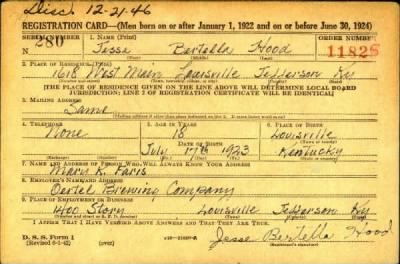 Disc. 12-21-46
REGISTRATION CARD—(Men born on or after January 1, 1922 and on or before June 30, 1924)
SERIAL NUMBER 1. NAME (Print) ORDER NUMBER
280 Jesse Bertella Hood 11825
2. PLACE OF RESIDENCE (Print)
1618 West Main Louisville Jefferson Ky
[THE PLACE OF RESIDENCE GIVEN ON THE LINE ABOVE WILL DETERMINE LOCAL BOARD
JURISDICTION; LINE 2 OF REGISTRATION CERTIFICATE WILL BE IDENTICAL]
3. MAILING ADDRESS
Same
4. TELEPHONE 5. AGE IN YEARS 6. PLACE OF BIRTH
None 18 Louisville
DATE OF BIRTH
July 17th 1923 Kentucky
7. NAME AND ADDRESS OF PERSON WHO WILL ALWAYS KNOW YOUR ADDRESS
Mary K. Faris
8. EMPLOYER'S NAME AND ADDRESS
Oertel Brewing Company
9. PLACE OF EMPLOYMENT OR BUSINESS
1400 Story Louisville Jefferson Ky
I AFFIRM THAT I HAVE VERIFIED ABOVE ANSWERS AND THAT THEY ARE TRUE.
D. S. S. Form 1
(Revised 6-1-42) Jesse Bertella Hood